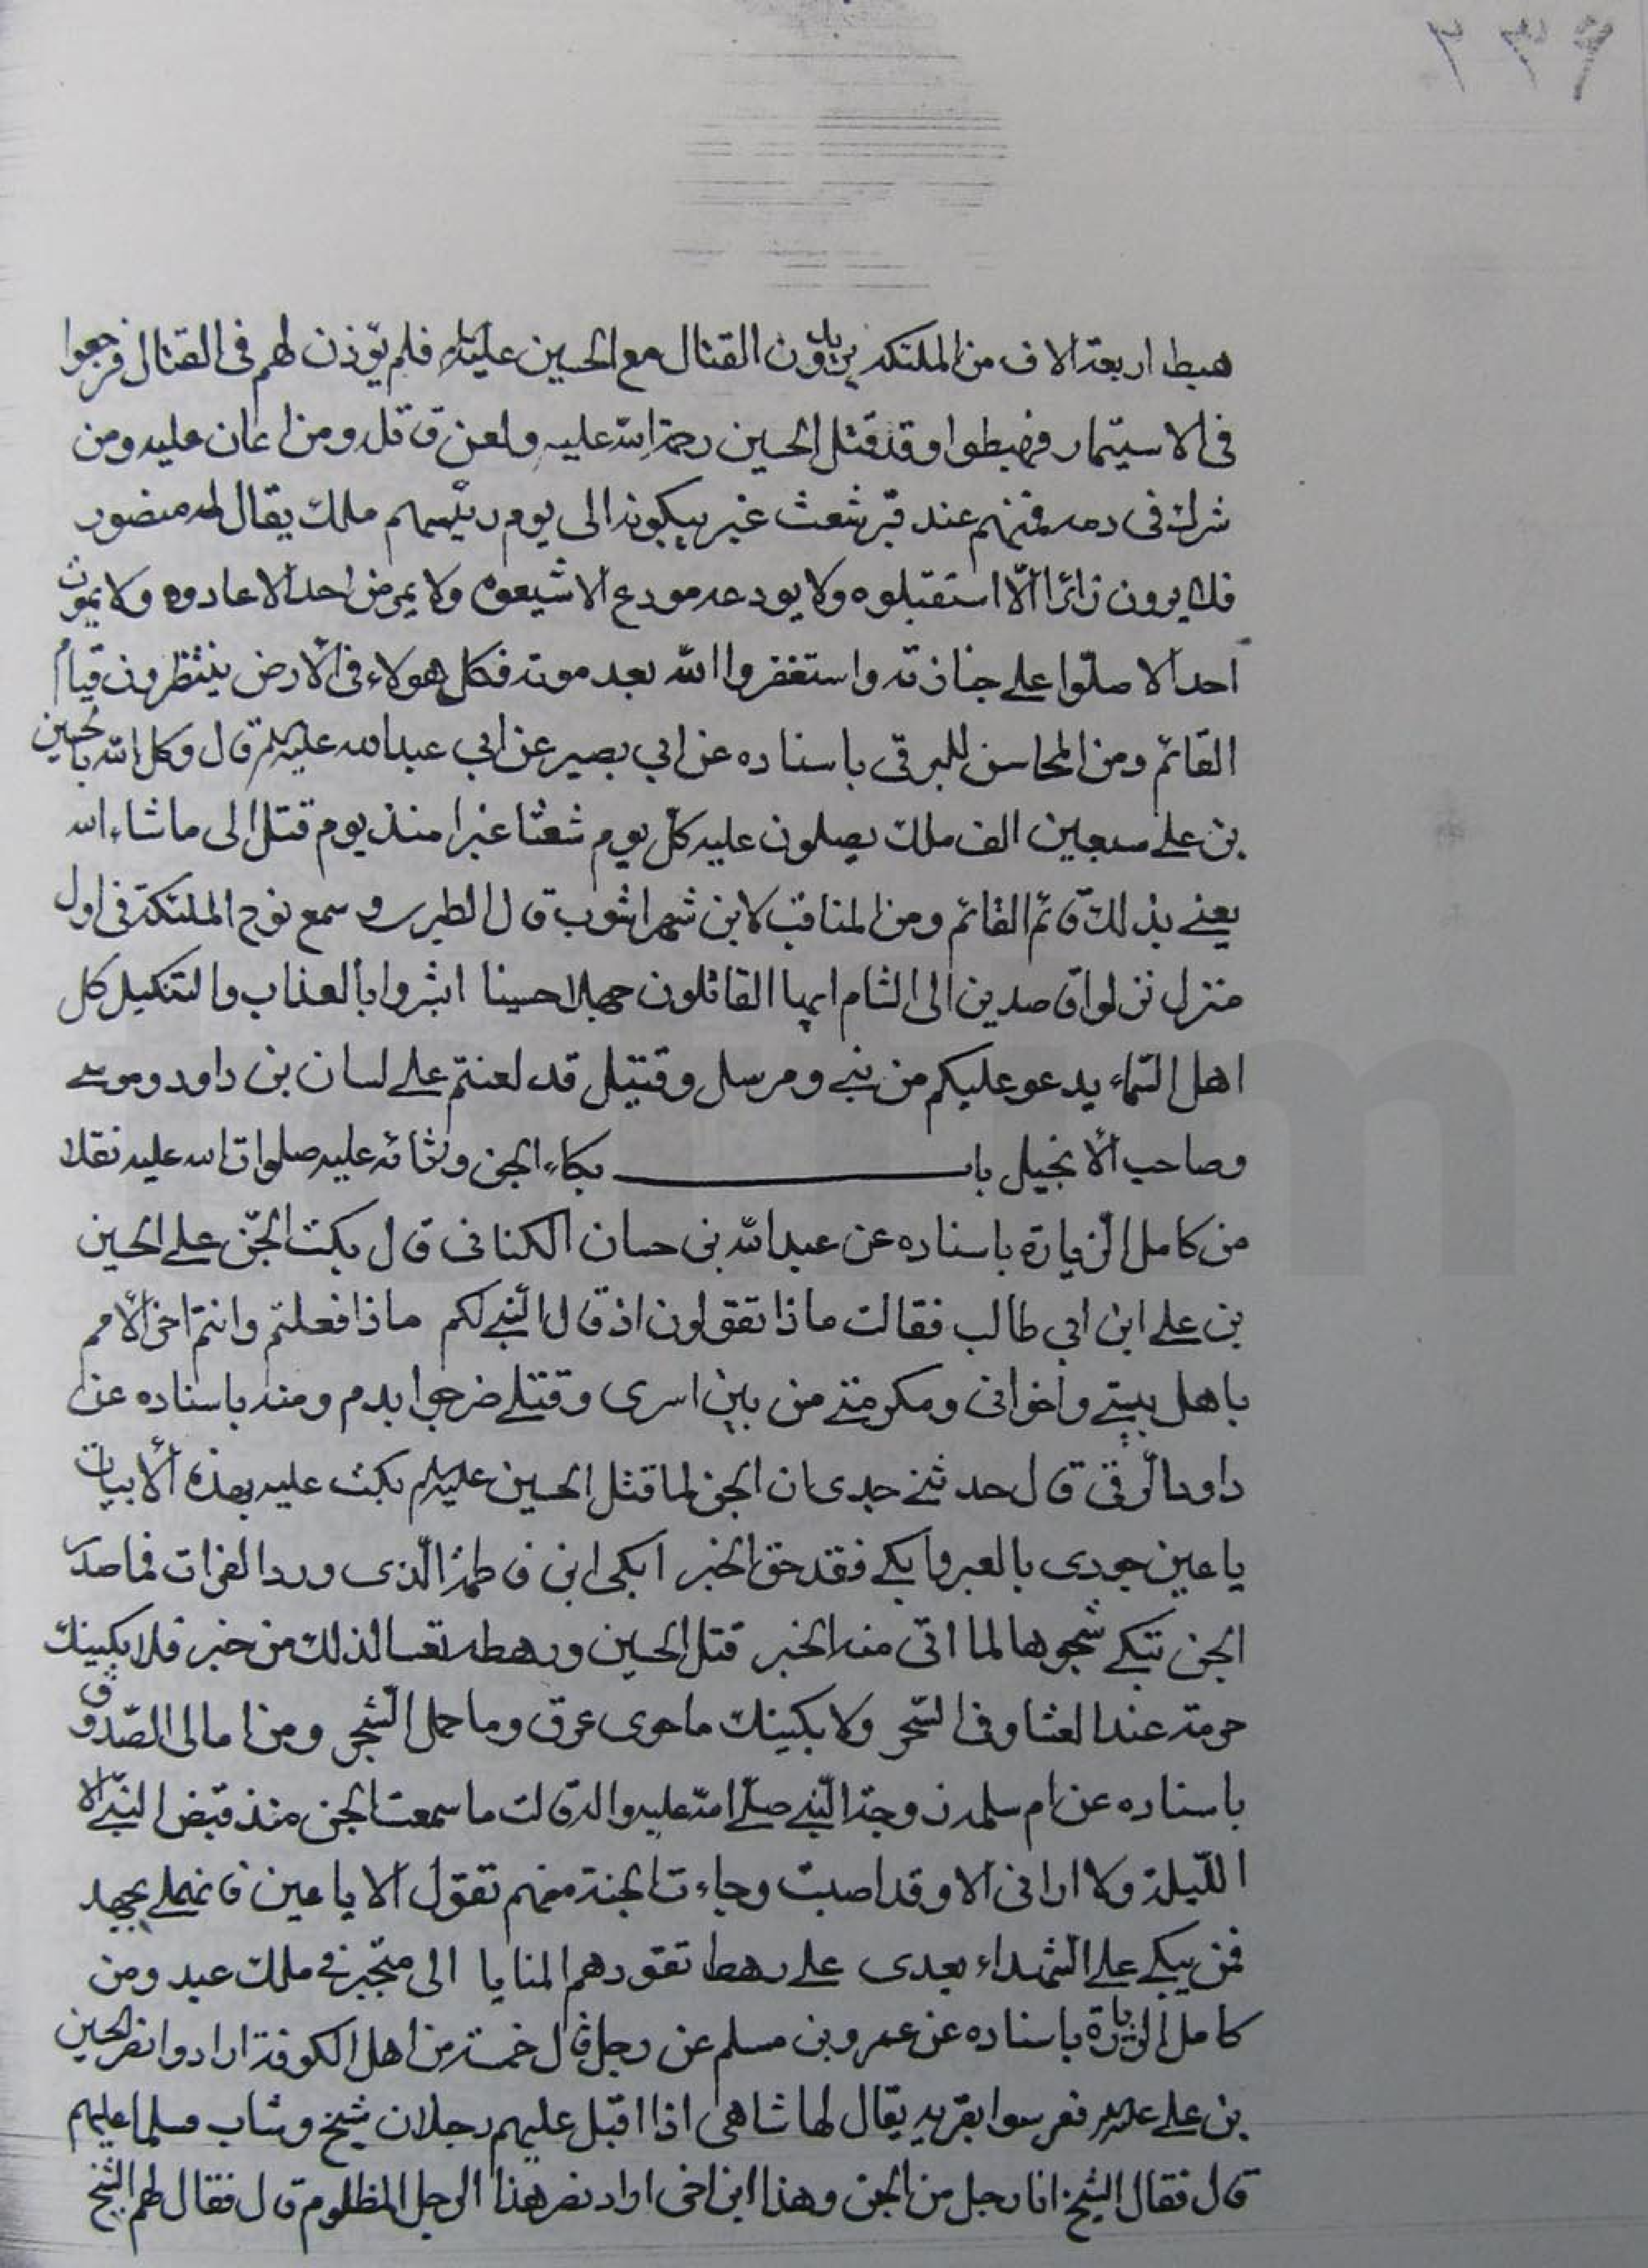 ٢٣۶
هبط اربعة الاف من الملئكة يريدون القتال مع الحسين عليه السلم فلم يؤذن لهم فى القتال فرجعوا
فى الاستيمار فهبطوا وقد قتل الحسين رحمة الله عليه ولعن قاتله ومن اعان عليه ومن
شرك فى دمه فهنهم عند قبر شعث غبر يبكونه الى يوم رئيسهم ملك يقال له منصور
فلا يرون زائرا الّا استقبلوه ولا يودعه مودع الا شيعوه ولا يمرض احد الا عادوه ولا يموت
احد الا صلّوا على جنازته واستغفروا الله بعد موته فكل هولاء فى الارض ينتظرون قيام
القائم ومن المحاسن للبرقى باسناده عن ابي بصير عن ابي عبد الله عليه السلم قال وكل الله بالحسين
بن على سبعين الف ملك يصلون عليه كلّ يوم شعثا غبرا منذ يوم قتل الى ما شاء الله
يعنى بذلك قائم القائم ومن المناقب لابن شهر اشوب قال الطبرى و سمع نوح الملئكة فى اول
منزل نزلوا قاصدين الى الشام ايها القاتلون جهلا حسينا ابشروا بالعذاب والتنكيل كل
اهل السّماء يدعو عليكم من نبى ومرسل وقتيل قد لعنتم على لسان بن داود وموسى
وصاحب الأنجيل باب بكاء الجن ورثائه عليه صلوات الله عليه نقلا
من كامل الزيارة باسناده عن عبد الله بن حسان الكنانى قال بكت الجنّ على الحسين
بن على ابن ابي طالب فقالت ماذا تقولون اذ قال النّبى لكم ماذا فعلتم وانتم اخر الأمم
باهل بيتى واخوانى ومكرمتى من بين اسرى وقتلى ضرجوا بدم ومنه باسناده عن
داود الرّقى قال حدثنى جدى ان الجن لما قتل الحسين عليه السلم بكت عليه بهذه الأبيات
يا عين جودى بالعبر وابكى فقد حق الخبر ابكى ابن فاطمة الّذى ورد الفرات فما صدر
الجن تبكى شجوها لما اتى منه الخبر قتل الحسين ورهطه تعسا لذلك من خبر فلابكينك
حرمة عند العشا وفى السّحر ولا بكينك ما جرى عرق وما حمل الشّجر ومن امالى الصّدوق
باسناده عن ام سلمة زوجة النّبى صلّى الله عليه واله قالت ما سمعت الجن منذ قبض النبىّ الا
اللّيلة ولا ارانى الا وقد اصبت وجاءت الجنة منهم تقول الا يا عين فانهملى بجهد
فمن يبكى على الشّهداء بعدى على رهط تقودهم المنايا الى متجبر فى ملك عبد ومن
كامل الزيارة باسناده عن عمرو بن مسلم عن رجل قال خمسة من اهل الكوفة ارادوا نصر الحسين
بن على عليه السلم فعرسوا بقرية يقال لها شاهى اذا اقبل عليهم رجلان شيخ وشاب فسلما عليهم
قال فقال الشيخ انا رجل من الجن وهذا ابن اخى اراد نصر هذا الرجل المظلوم قال فقال لهم الشيخ